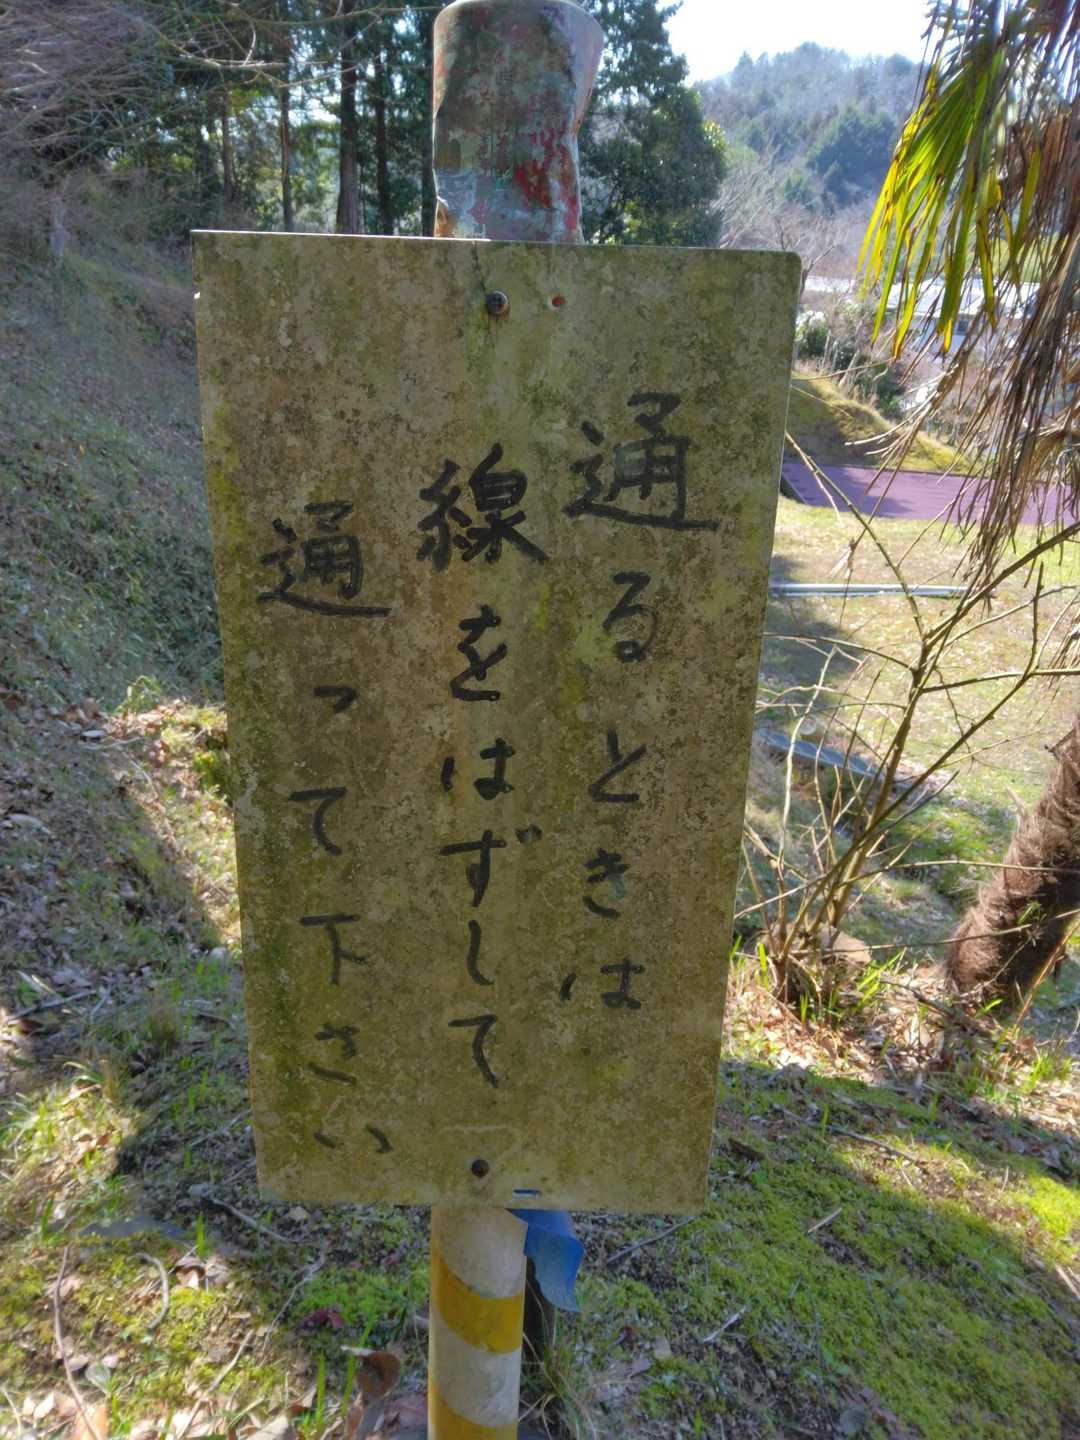 通るときは
線をはずして
通って下さい